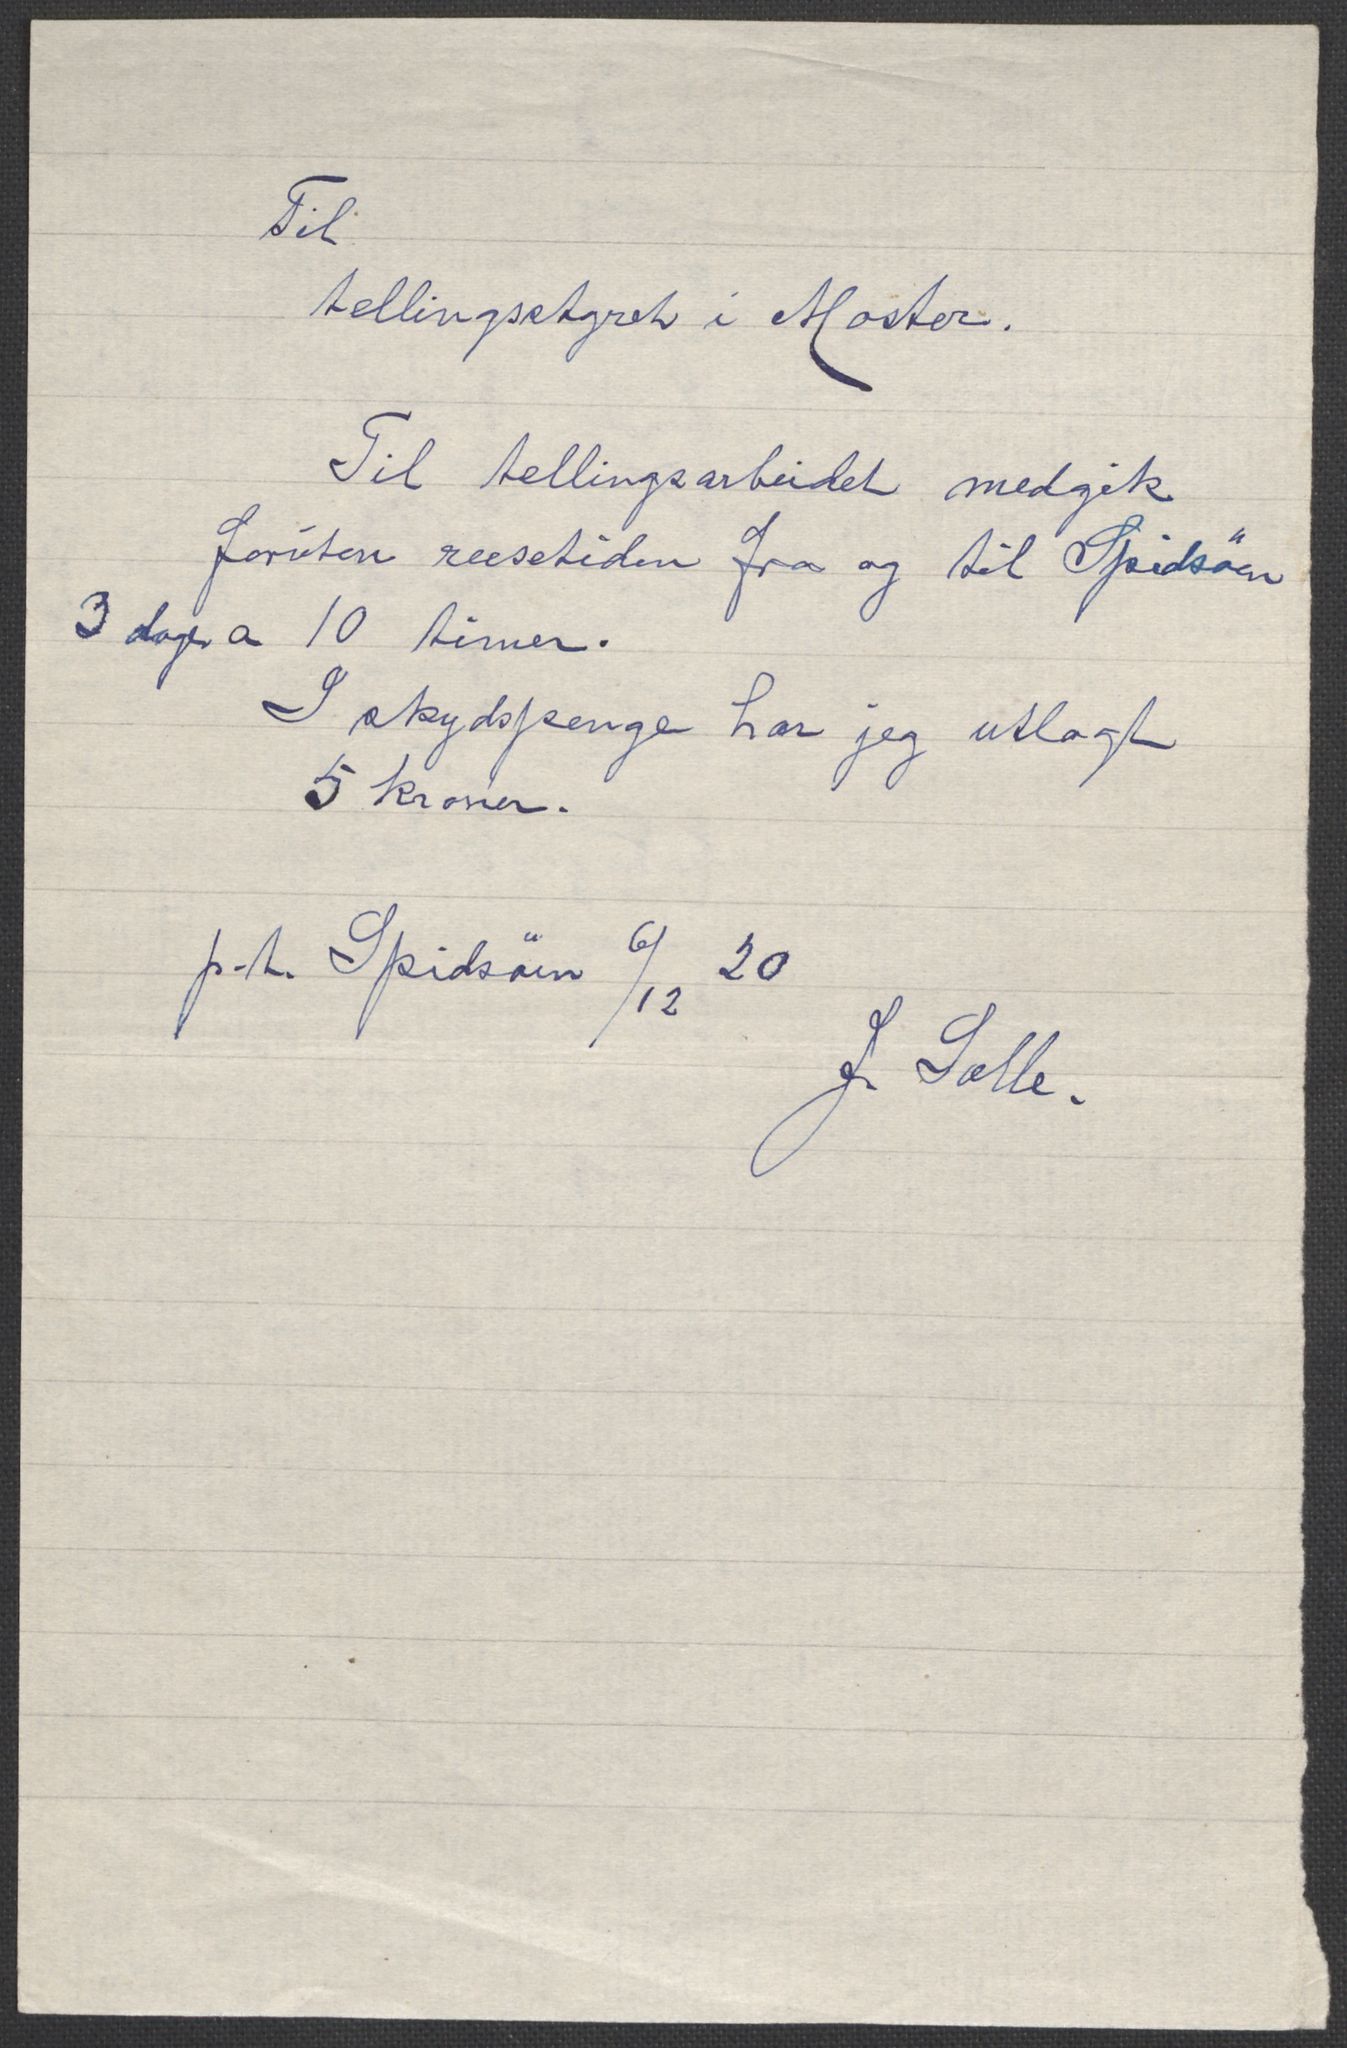 Til
tellingsstyret i Moster.
Til tellingsarbeidet medgik
foruten reisetiden fra og til Spidsöen
3 dage a 10 timer.
I skydspenge har jeg utlagt
5 kroner.
p.t. Spidsöen 6/12 20
J. Sælle.